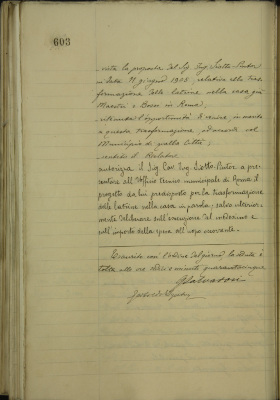 603
vista la proposta del Sig. Ing. Giotto-Pintor
in data 11 giugno 1905, relativa alla tras-
formazione delle latrine nella casa già
Maestri e Bossi in Roma;
ritenuta l'opportunità di venire in merito
a questa trasformazione, d'accordo col
Municipio di quella città;
udito il Relatore
autorizza il Sig. Cav. Ing. Giotto-Pintor a pre-
sentare all'Ufficio tecnico municipale di Roma il
progetto da lui predisposto per la trasformazione
delle latrine nella casa in parola; salvo ulterior-
mente deliberare sull'esecuzione del medesimo e
sull'importo della spesa all'uopo occorrente.
Esaurito così l'ordine del giorno la seduta è
tolta alle ore sedici e minuti quarantacinque